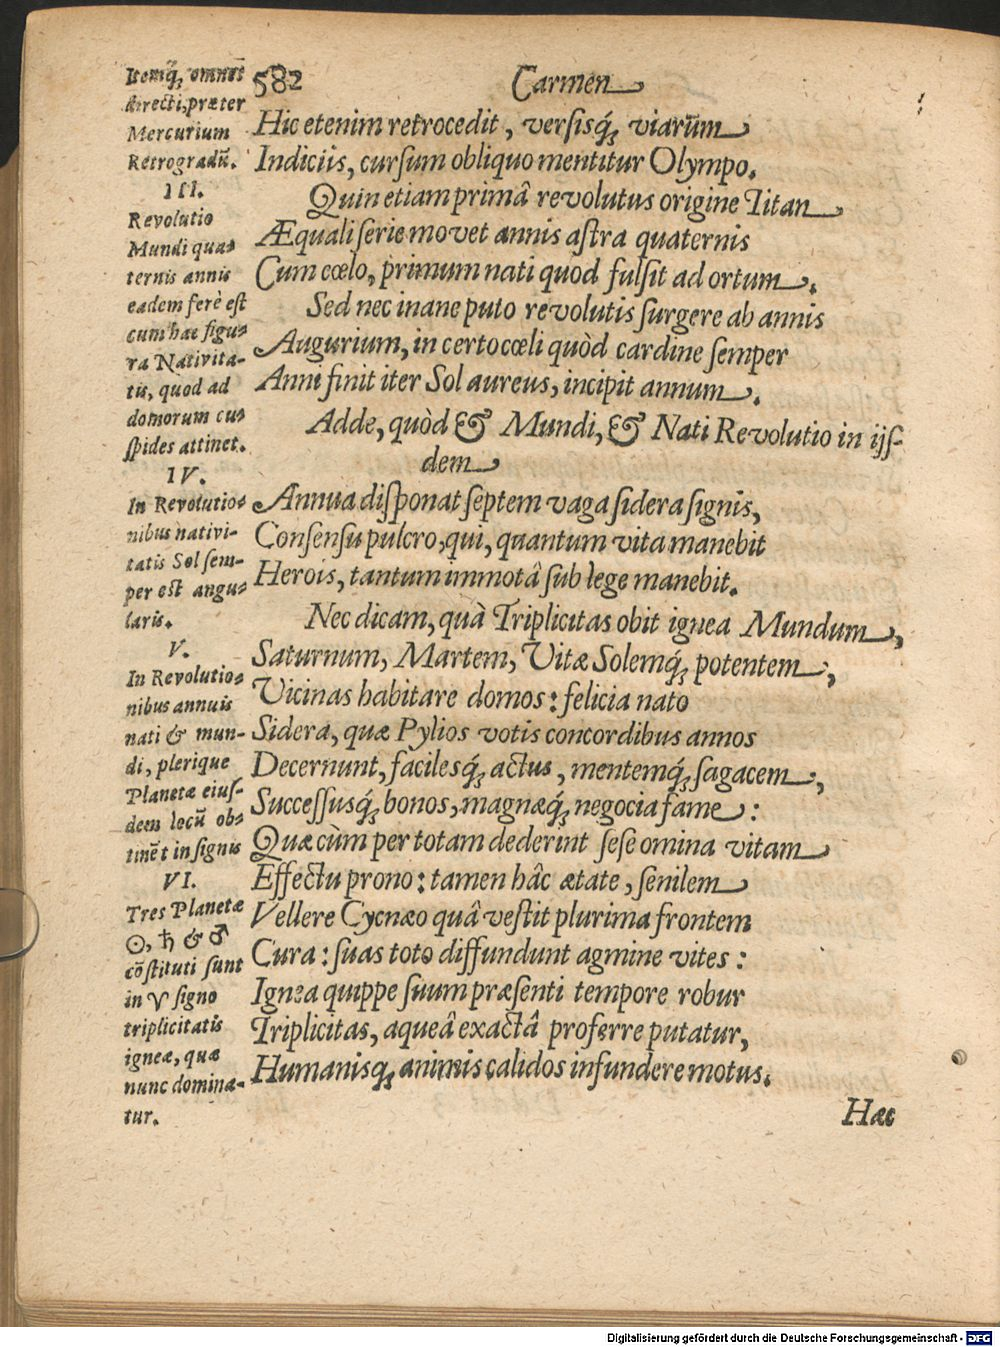 582
Carmen
Itemq́; omnes
directi, præter
Mercurium
Retrogradū.
III.
Revolutio
Mundi qua-
ternis annis
eadem ferè est
cum hac figu-
ra Nativita-
tis, quod ad
domorum cu-
spides attinet.
IV.
In Revolutio-
nibus nativi-
tatis Sol sem-
per est angu-
laris.
V.
In Revolutio-
nibus annuis
nati & mun-
di, plerique
Planetæ eius-
dem locū ob-
tinēt in signis
VI.
Tres Planetæ
☉, ♄ & ♂
cōstituti sunt
in ♈ signo
triplicitatis
igneæ, quæ
nunc domina-
tur.
Hic etenim retrocedit, versisq́; viarūm
Indiciis, cursum obliquo mentitur Olympo.
Quin etiam primâ revolutus origine Titan
Æquali serie movet annis astra quaternis
Cum cœlo, primum nati quòd fulsit ad ortum.
Sed nec inane puto revolutis surgere ab annis
Augurium, in certo cœli quòd cardine semper
Anni finit iter Sol aureus, incipit annum.
Adde, quòd & Mundi, & Nati Revolutio in ijs-
dem
Annua disponat septem vaga sidera signis,
Consensu pulcro, qui, quantum vita manebit
Herois, tantum immotâ sub lege manebit.
Nec dicam, quà Triplicitas obit ignea Mundum,
Saturnum, Martem, Vitæ Solemq́; potentem,
Vicinas habitare domos: felicia nato
Sidera, quæ Pylios votis concordibus annos
Decernunt, facilesq́; actus, mentemq́; sagacem,
Successusq́; bonos, magnæq́; negocia fame:
Quæ cùm per totam dederint sese omina vitam
Effectu prono: tamen hâc ætate, senilem
Vellere Cycnæo quâ vestit plurima frontem
Cura: suas toto diffundunt agmine vites:
Ignea quippe suum præsenti tempore robur
Triplicitas, aqueâ exactâ proferre putatur,
Humanisq; animis calidos infundere motus.
Hæc
Digitalisierung gefördert durch die Deutsche Forschungsgemeinschaft - DFG